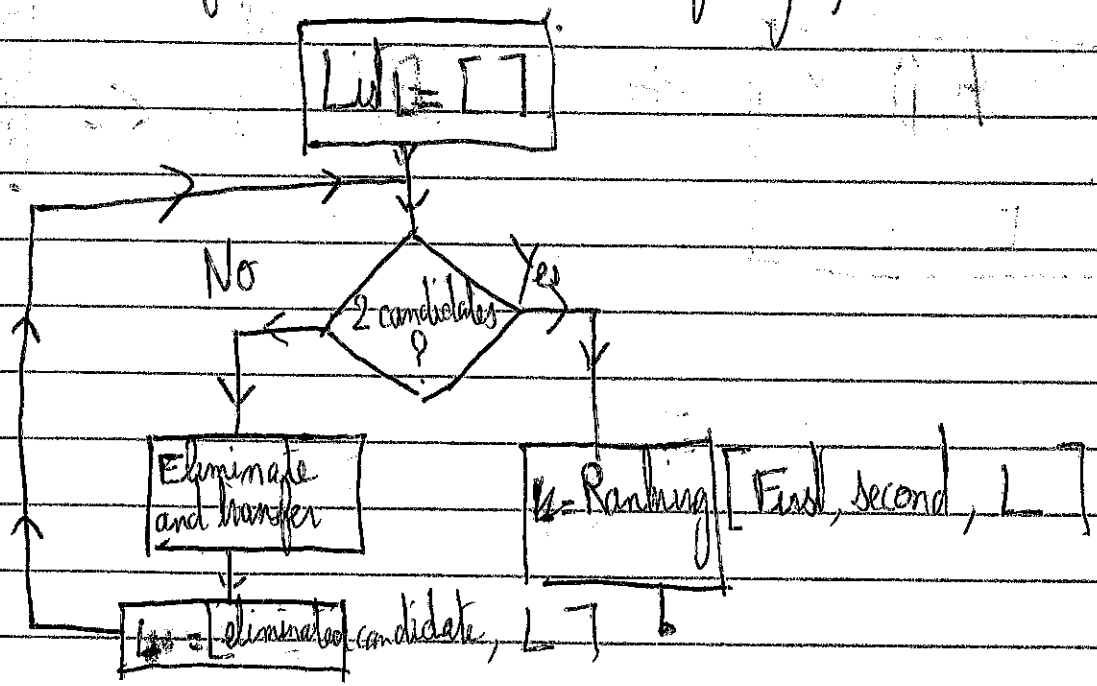 List L = [ ]
No
Yes
2 candidates
?
Eliminate
and transfer
= Ranking [First, second, L ]
= [eliminated candidate, L ]